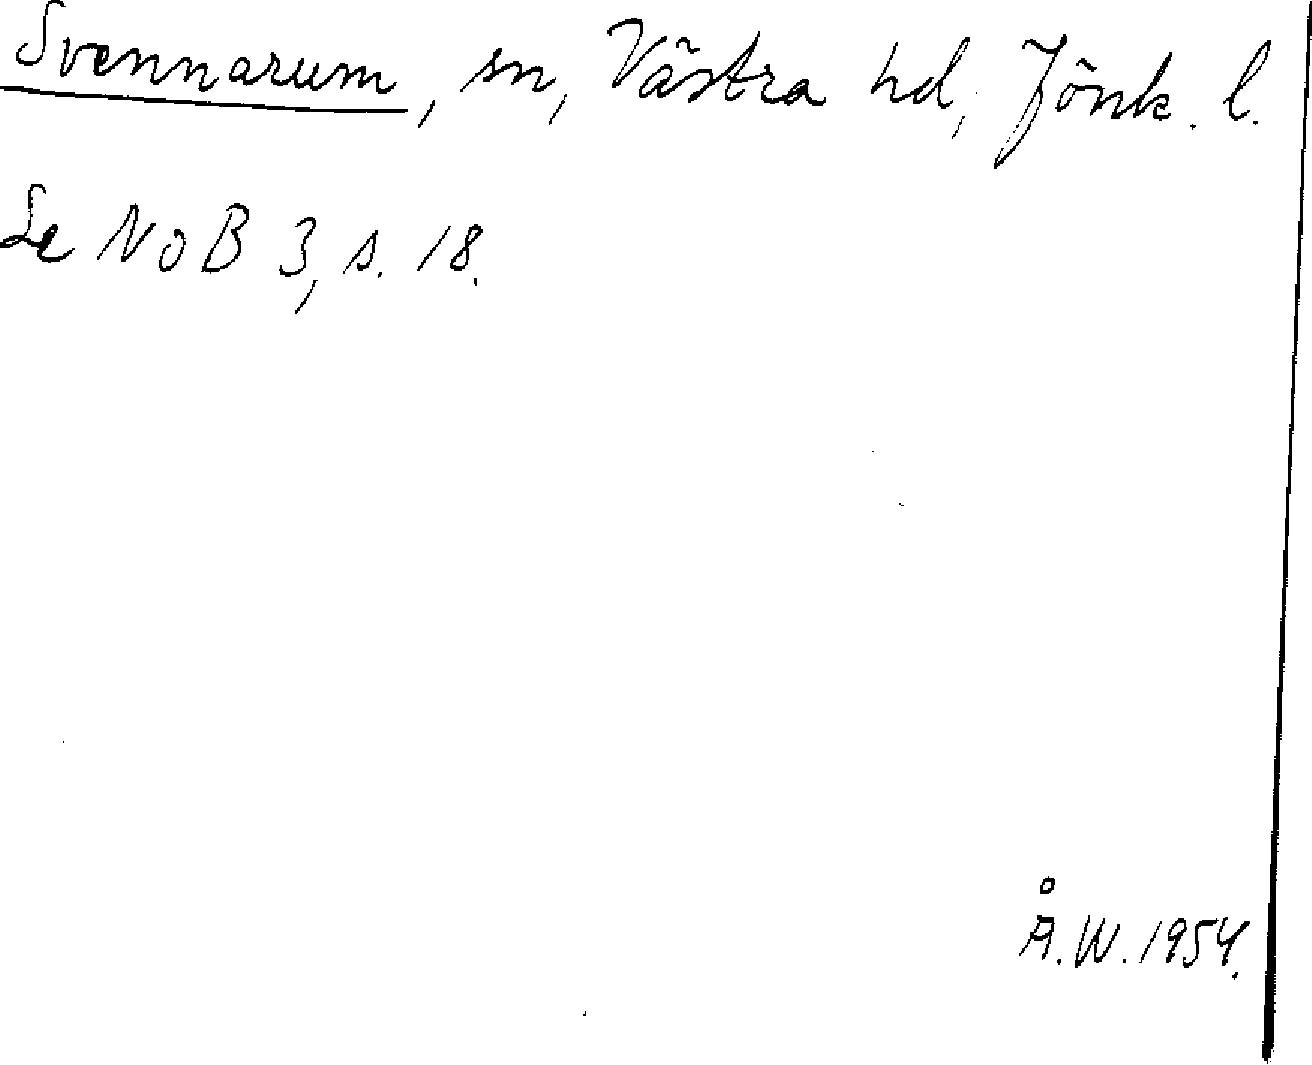 Svennarum, sn, Västra hd, Jönk. l.
Se NoB 3, s. 18.
Å.W. 1954.